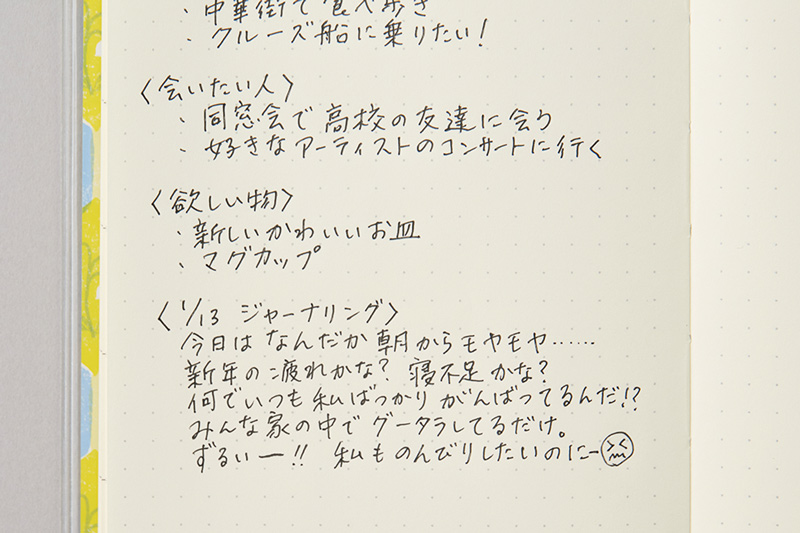 ・中華街で食べ歩き
・クルーズ船に乗りたい!
〈会いたい人〉
・同窓会で高校の友達に会う
・好きなアーティストのコンサートに行く
〈欲しい物〉
・新しいかわいいお皿
・マグカップ
〈1/13 ジャーナリング〉
今日はなんだか朝からモヤモヤ……
新年の疲れかな?寝不足かな?
何でいつも私ばっかりがんばってるんだ!?
みんな家の中でグータラしてるだけ。
ずるいー!! 私ものんびりしたいのにー